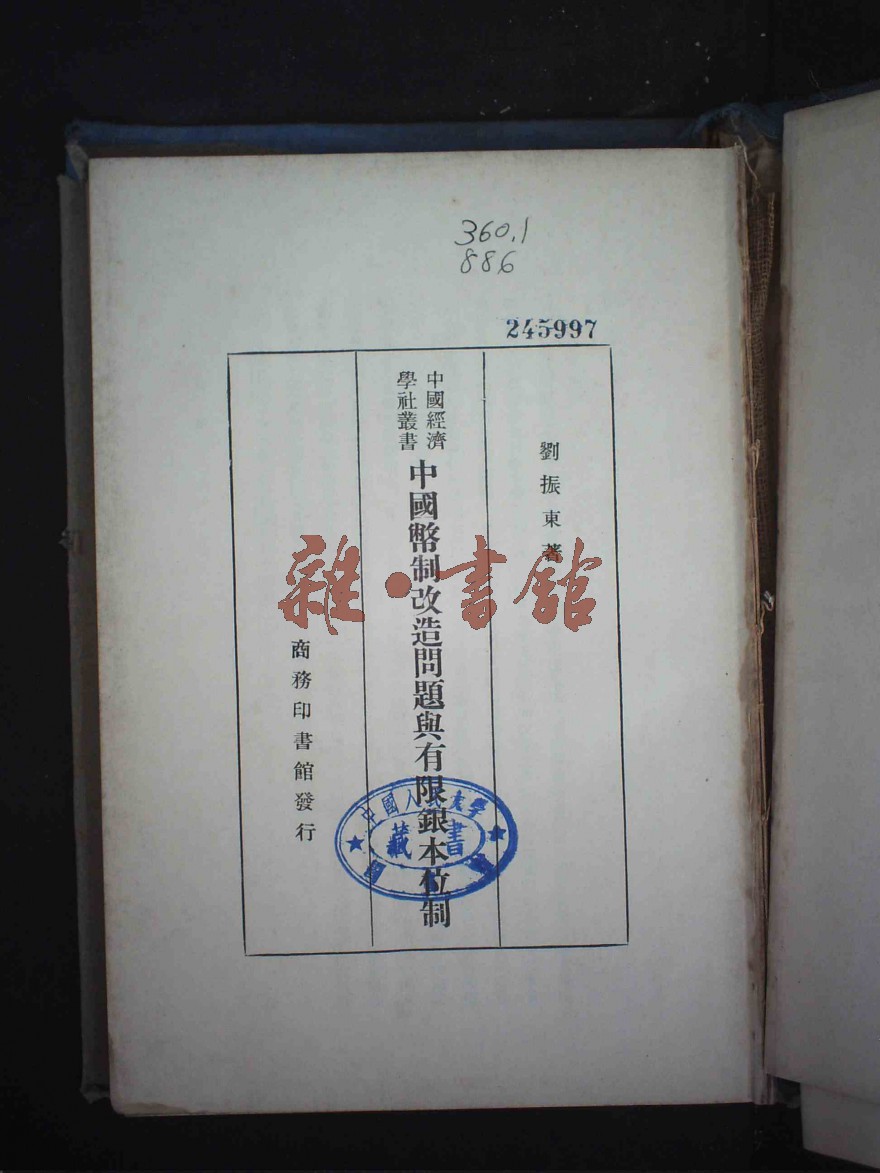 360.1
886
245997
劉振東著
中國經濟
學社叢書
中國幣制改造問題與有限銀本位制
商務印書館發行
雜·書館
中國人民大學
藏書